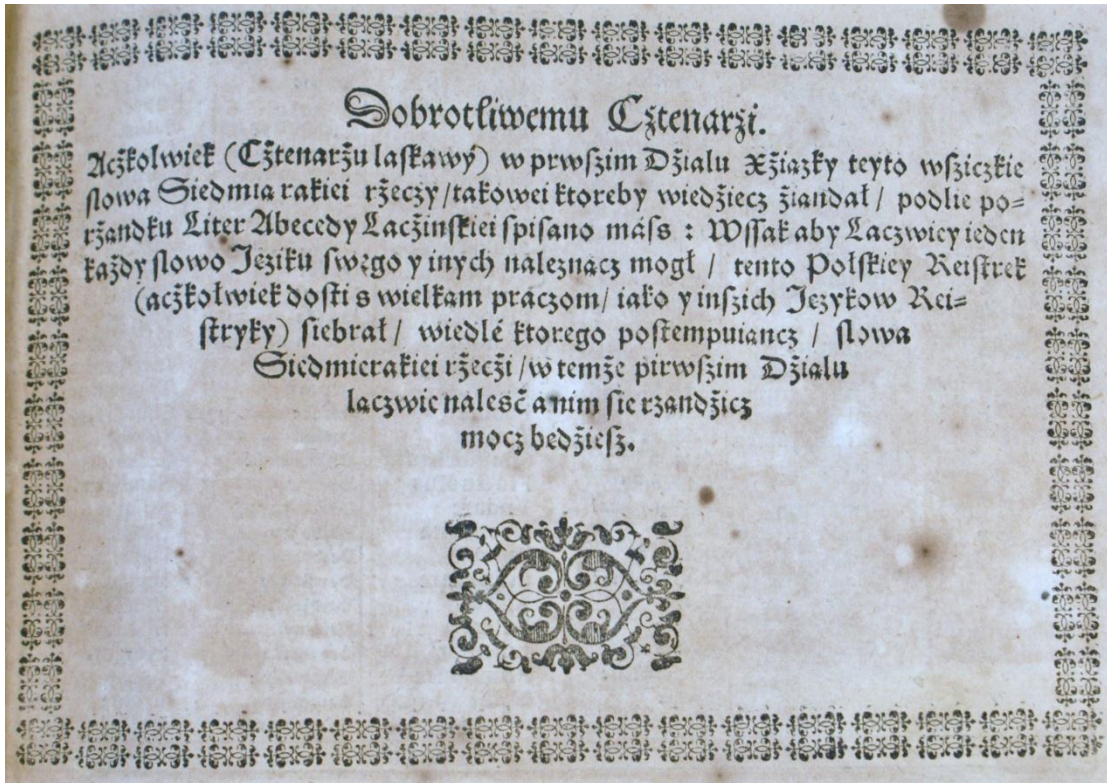 Dobrotliwemu Cżtenarżi.
Aczkolwiek (Cżtenarżu laskawý) w prwszim Dżialu Xżiązky teyto wsziczkie
slowa Siedmia rakiei rżeczy / takowei ktoreby wiedżiecz żiandał / podlie po=
rżandku Liter Abecedy Laczinskiei spisano máſs : Wſſak aby Laczwiey ieden
każdy slowo Jęziku swęgo y inych naleznacz mogł / tento Polskiey Reistrek
(aczkolwiek dosti s wielkam praczom / iako y inszich Językow Rei=
stryky) siebrał / wiedlé ktorego postempuiancz / slowa
Siedmierakiei rżeczi / w temże pirwszim Dżialu
laczwie nalesč a nim sie rzandżicz
mocz bedżiesz.